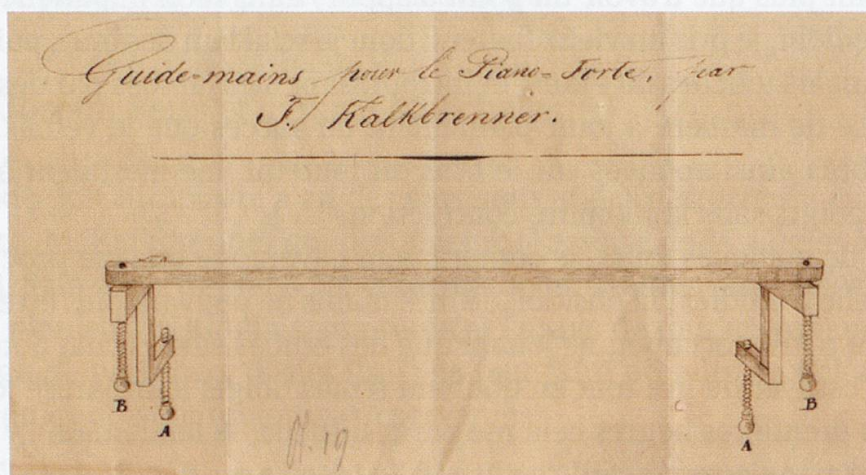 Guide=mains pour le Piano=Forte, par
F. Kalkbrenner.
B
A
A
B